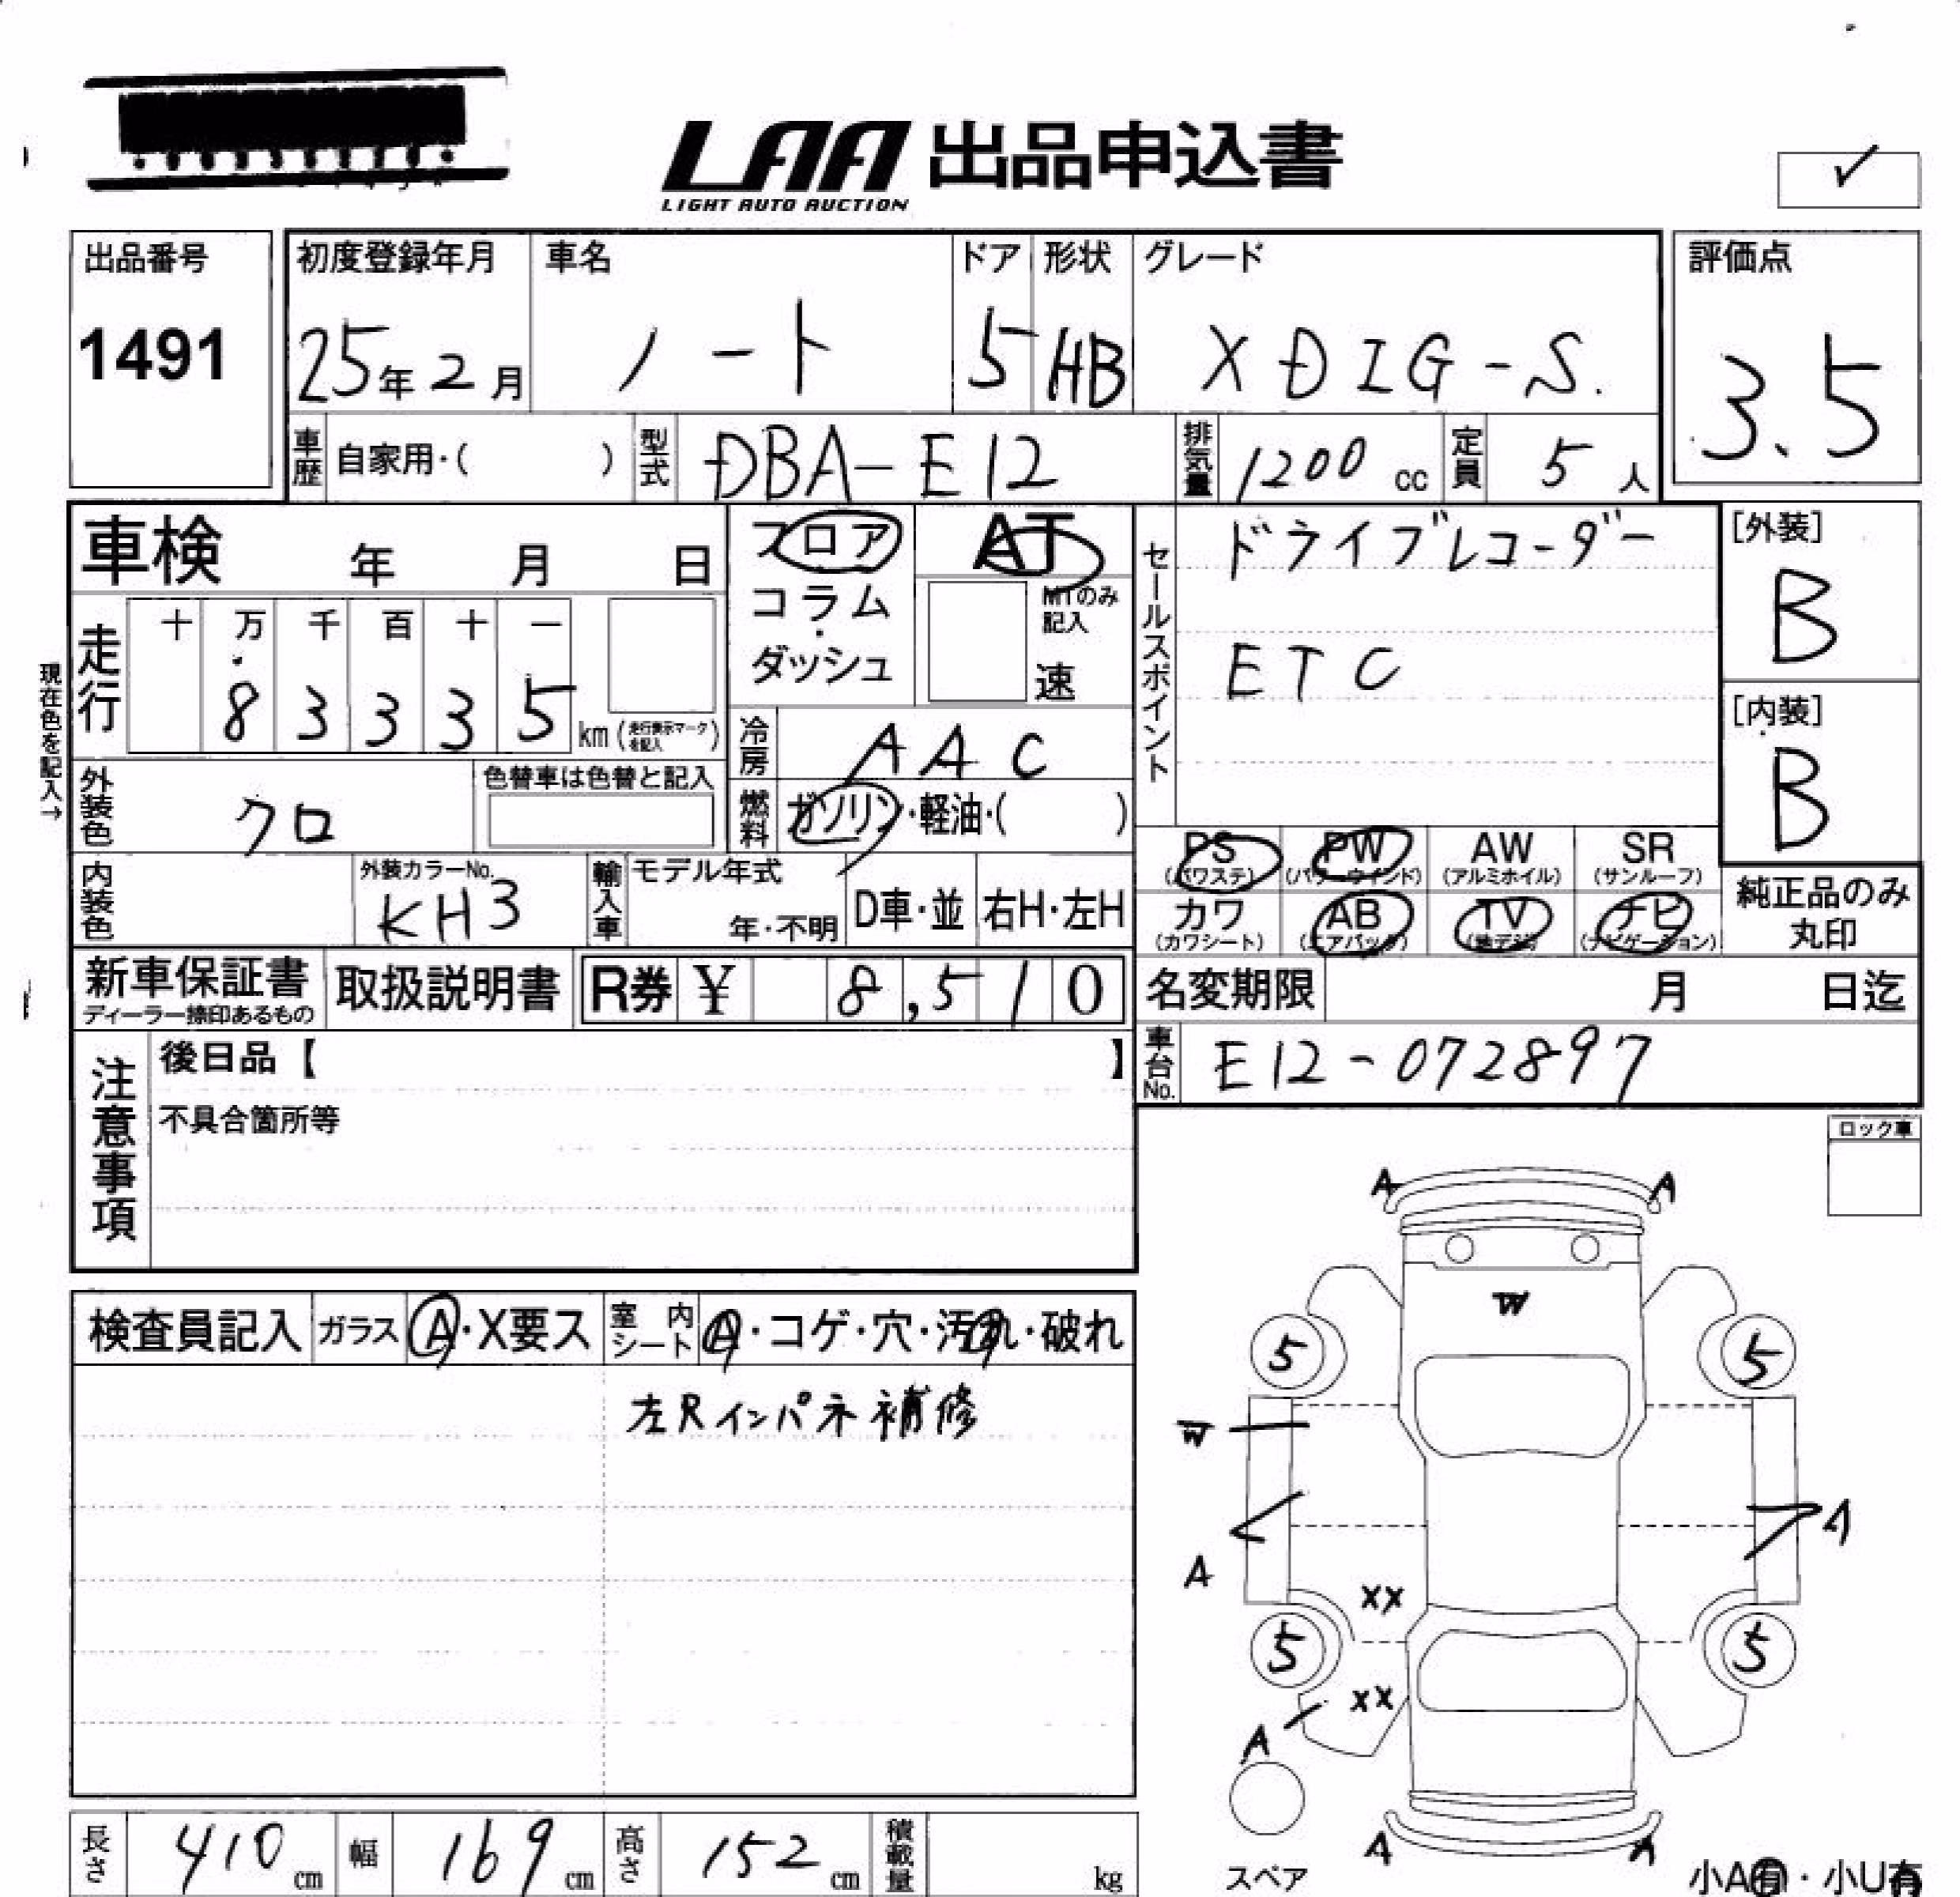 LAA 出品申込書
LIGHT AUTO AUCTION
✓
出品番号
1491
初度登録年月
25年2月
車名
ノート
ドア
5
形状
HB
グレード
X DIG-S.
評価点
3.5
車歴 自家用・( )
型式 DBA-E12
排気量 1200 cc
定員 5 人
車検 年 月 日
フロア
コラム
・
ダッシュ
AT
MTのみ
記入
速
セールスポイント
ドライブレコーダー
ETC
[外装]
B
[内装]
B
現在色を記入→
走行
十 万 千 百 十 一
8 3 3 3 5 km (走行表示マークを記入)
冷房 AAC
外装色 クロ
色替車は色替と記入
燃料 ガソリン・軽油・( )
PS
(パワステ)
PW
(パワーウインド)
AW
(アルミホイル)
SR
(サンルーフ)
カワ
(カワシート)
AB
(エアバック)
TV
(地デジ)
ナビ
(ナビゲーション)
純正品のみ
丸印
内装色
外装カラーNo.
KH3
輸入車
モデル年式
年・不明
D車・並
右H・左H
新車保証書
ディーラー捺印あるもの
取扱説明書
R券 ¥ 8,510
名変期限 月 日迄
車台No. E12-072897
注意事項
後日品【 】
不具合箇所等
ロック車
検査員記入
ガラス A・X要ス
室内シート A・コゲ・穴・汚れ・破れ
左Rインパネ補修
A A
W
5 5
W
A
A
XX
5 5
XX
A
スペア
A A
長さ 410 cm
幅 169 cm
高さ 152 cm
積載量 kg
小A有・小U有